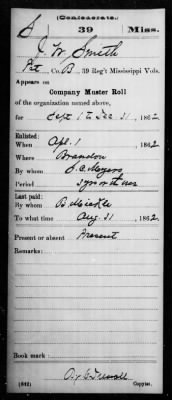 (Confederate.)
S 39 Miss.
J. W. Smith
Pvt, Co. B, 39 Reg't Mississippi Vols.
Appears on
Company Muster Roll
of the organization named above,
for Sept 1 to Dec 31, 1862
Enlisted:
When Apl. 1, 1862
Where Brandon
By whom J. C. Mayers
Period 3 yrs or the war
Last paid:
By whom B. Mickle
To what time Aug. 31, 1862
Present or absent Present
Remarks:
Book mark:
(642) Copyist.